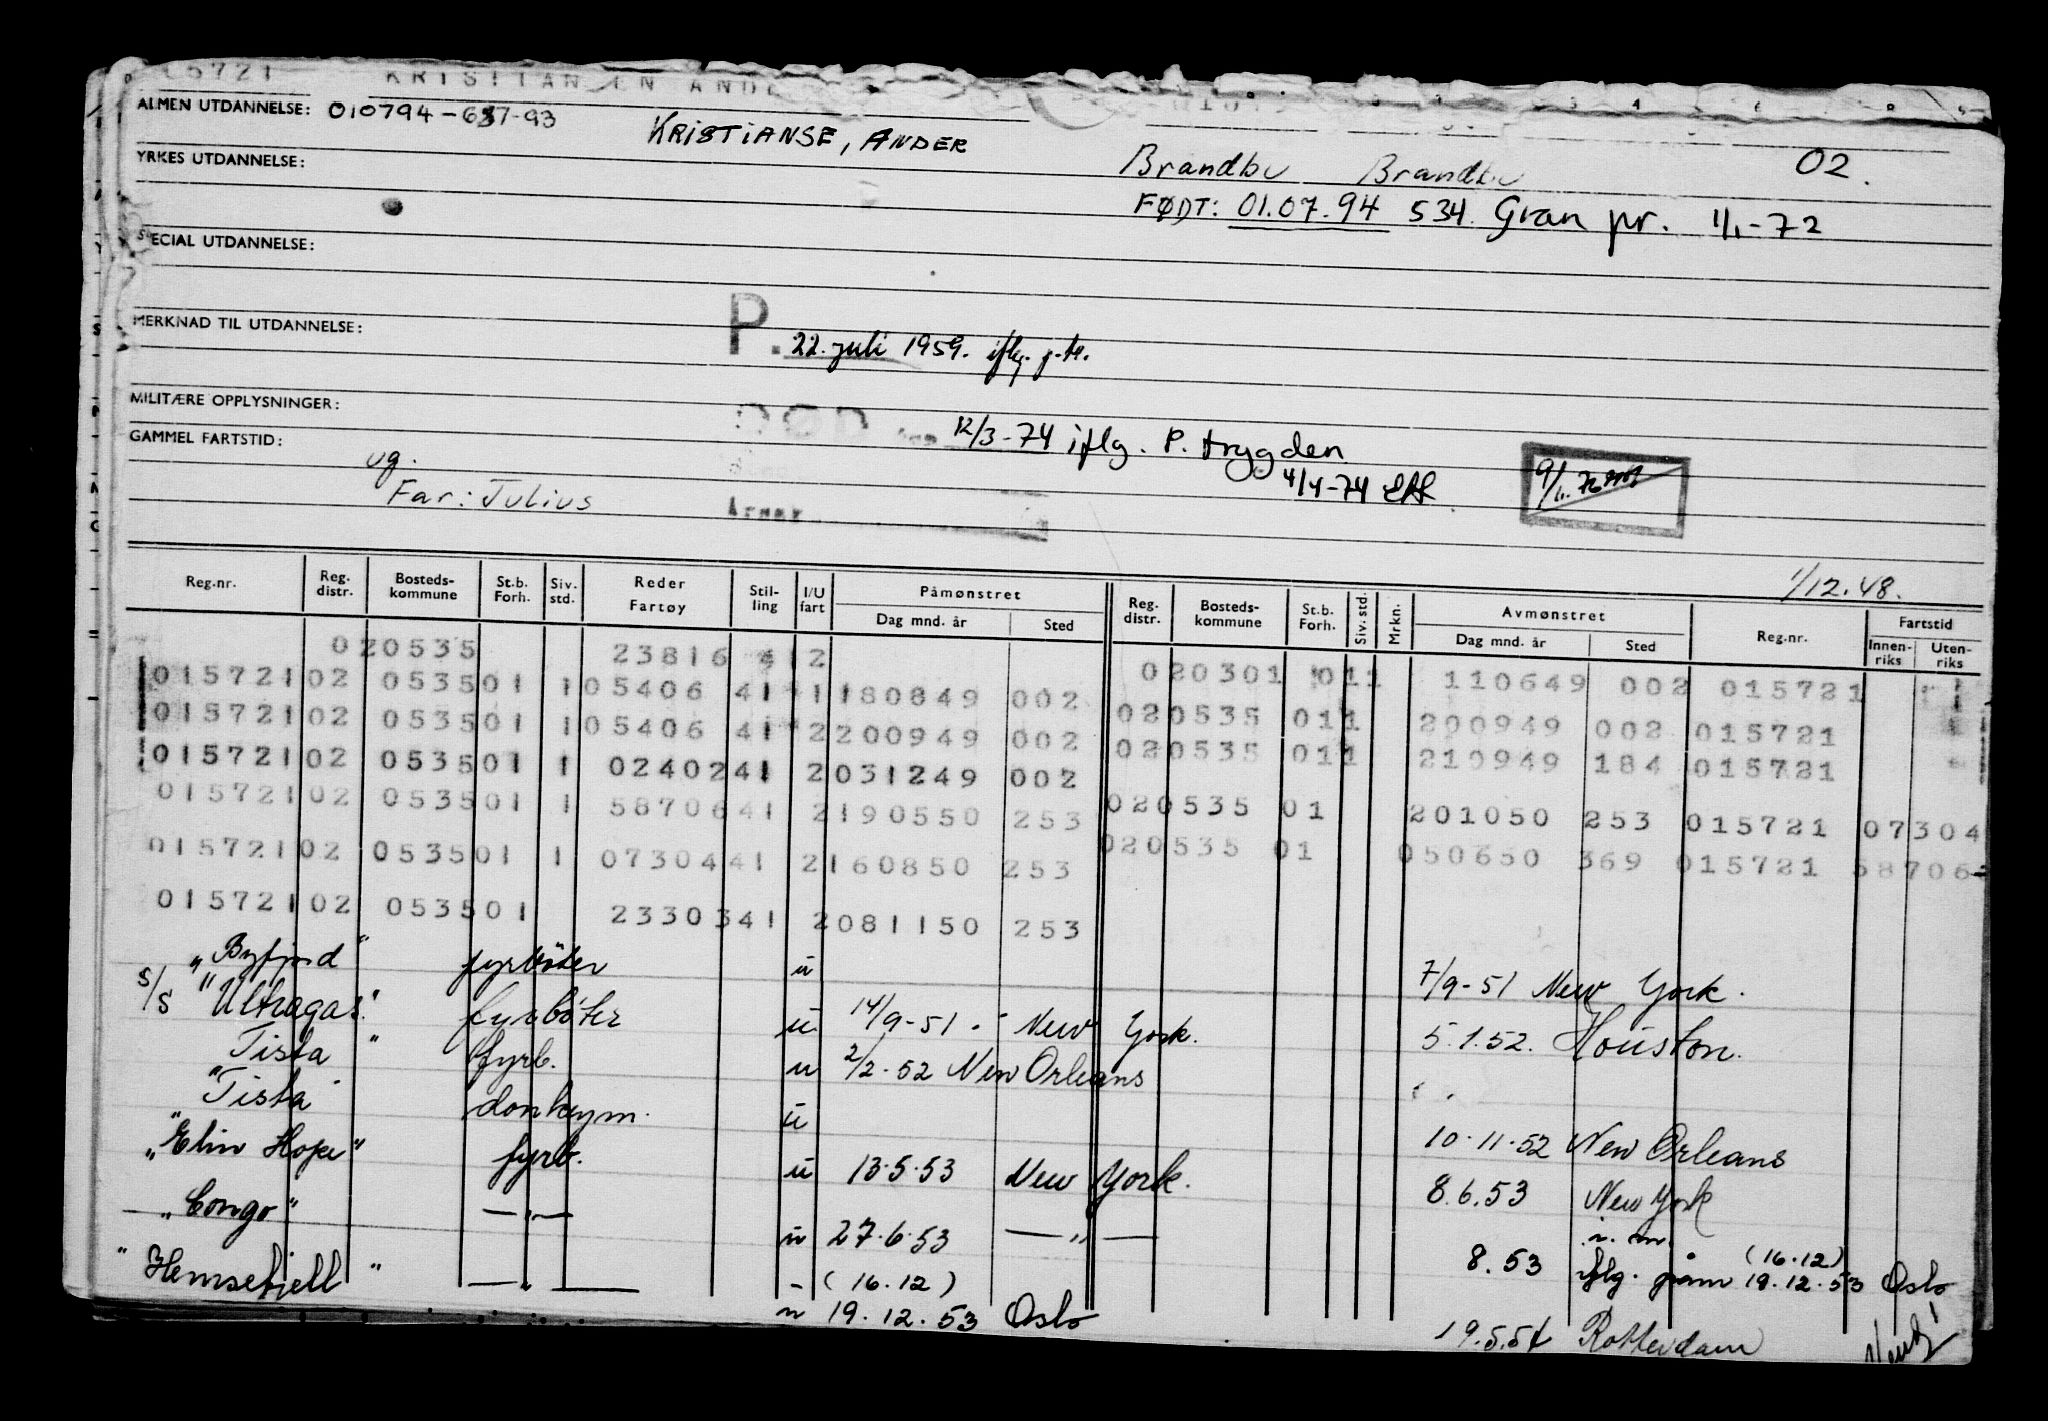 15721 KRISTIAN EN AND
ALMEN UTDANNELSE: 010794-637-93
KRISTIANSE, ANDER
YRKES UTDANNELSE:
Brandbu Brandbu 02.
FØDT: 01.07.94 534 Gran pr. 1/1-72
SPECIAL UTDANNELSE:
MERKNAD TIL UTDANNELSE:
P. 22. juli 1959. iflg. p.tr.
MILITÆRE OPPLYSNINGER:
DØD 12/3-74 iflg. P. trygden
GAMMEL FARTSTID:
ug. 4/4-74
Far: Julius
1/12.48.
Reg.nr. Reg. distr. Bosteds-kommune St.b. Forh. Siv. std. Reder Fartøy Stil-ling I/U fart Påmønstret Dag mnd. år Sted Reg. distr. Bosteds-kommune St.b. Forh. Siv. std. Mrkn. Avmønstret Dag mnd. år Sted Reg.nr. Fartstid Innen-riks Uten-riks
020535 23816 412 020301 011 110649 002 015721
015721 02 053501 1 05406 41 1 180849 002 020535 011 200949 002 015721
015721 02 053501 1 05406 41 2 200949 002 020535 011 210949 184 015721
015721 02 053501 1 02402 41 2 031249 002
015721 02 053501 1 58706 41 2 190550 253 020535 01 201050 253 015721 07304
015721 02 053501 1 07304 41 2 160850 253 020535 01 050650 369 015721 58706
015721 02 053501 23303 41 2 081150 253
"Byfjord" fyrbøter u 7/9-51 New York.
S/S "Ultragas" fyrbøter u 14/9-51 New York. 5.1.52. Houston.
Tista " fyrb. u 2/2-52 New Orleans
"Tista donkeym. u 10.11.52 New Orleans
"Elin Hope" fyrb. u 13.5.53 New York. 8.6.53 New York
"Congo" —"— u 27.6.53 —"— 8.53 iflg. påm (16.12) 19.12.53 Oslo
"Hemsefjell" —"— - (16.12)
u 19.12.53 Oslo 19.5.54 Rotterdam